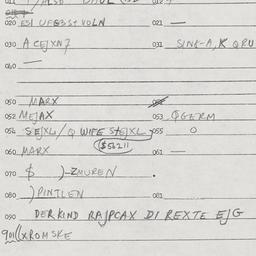 020 ESI UFB3St VOLN 021 —
030 A CEJXN7 031 SINK-A, K QRU
040 —
050 MARX
052 MEJAX 053 QGERM
054 SEJXL/Q WIFE StEJXL 055 0
($5211)
060 MARX 061 —
070 $ )-ZMUREN .
080 )PINTLEN 081
090 DER KIND RAJPCAX DI REXTE EJG
XROMSKE